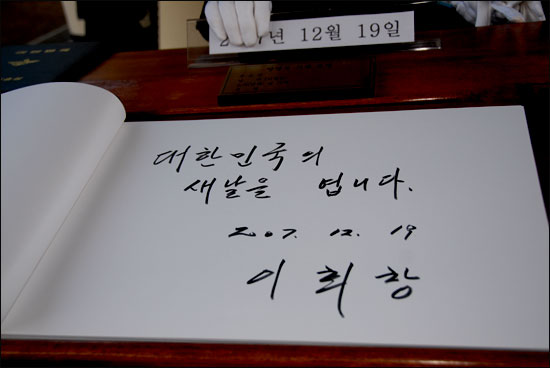 년 12월 19일
대한민국의
새날을 엽니다.
2007. 12. 19
이회창